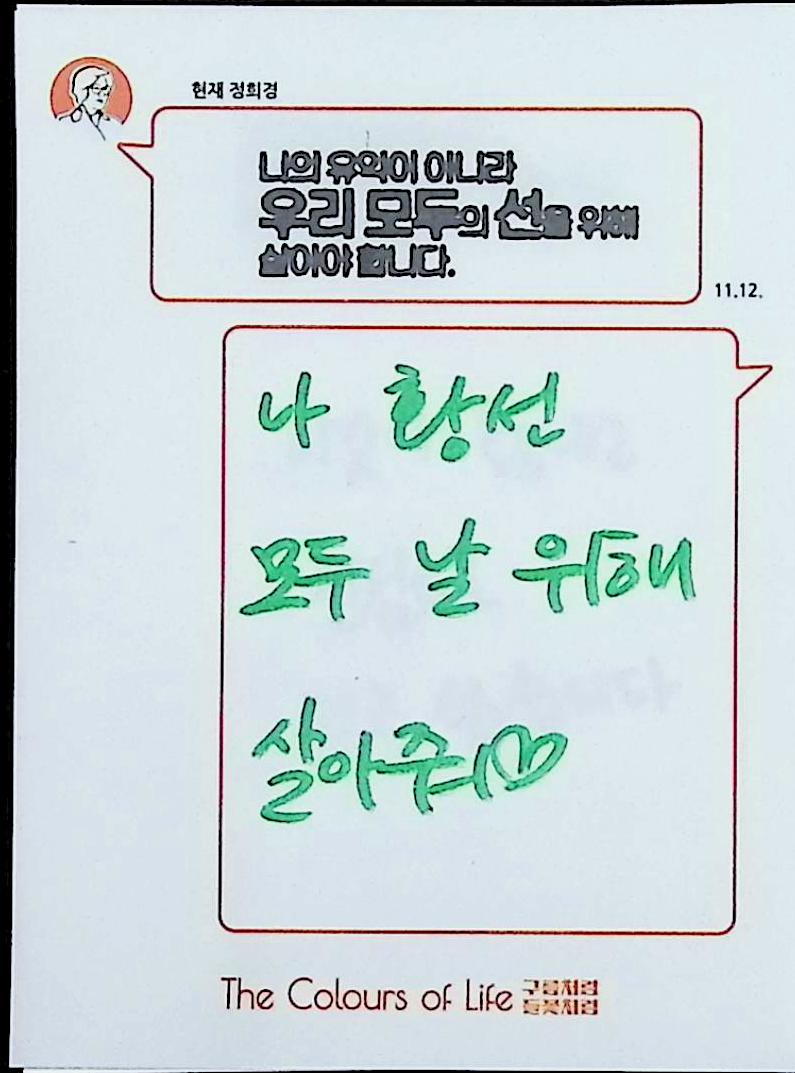 현재 정희경
나의 유익이 아니라
우리 모두의 선을 위해
살아야 합니다.
11.12.
나 황선
모두 날 위해
살아줘♡
The Colours of Life 구름처럼
들꽃처럼